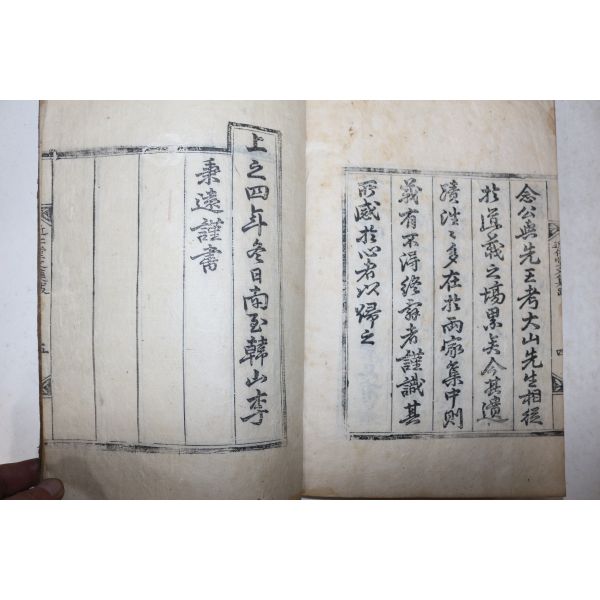 念公與先王考大山先生相從
於道義之場累矣今其遺
蹟往〻多在於兩家集中則
義有不得終辭者謹識其
所感於心者以歸之
四
上之四年冬日南至韓山李
秉遠謹書
五